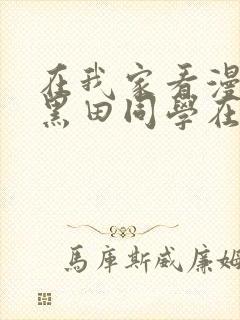 在我家看漫
黑田同學在
馬庫斯威廉姆